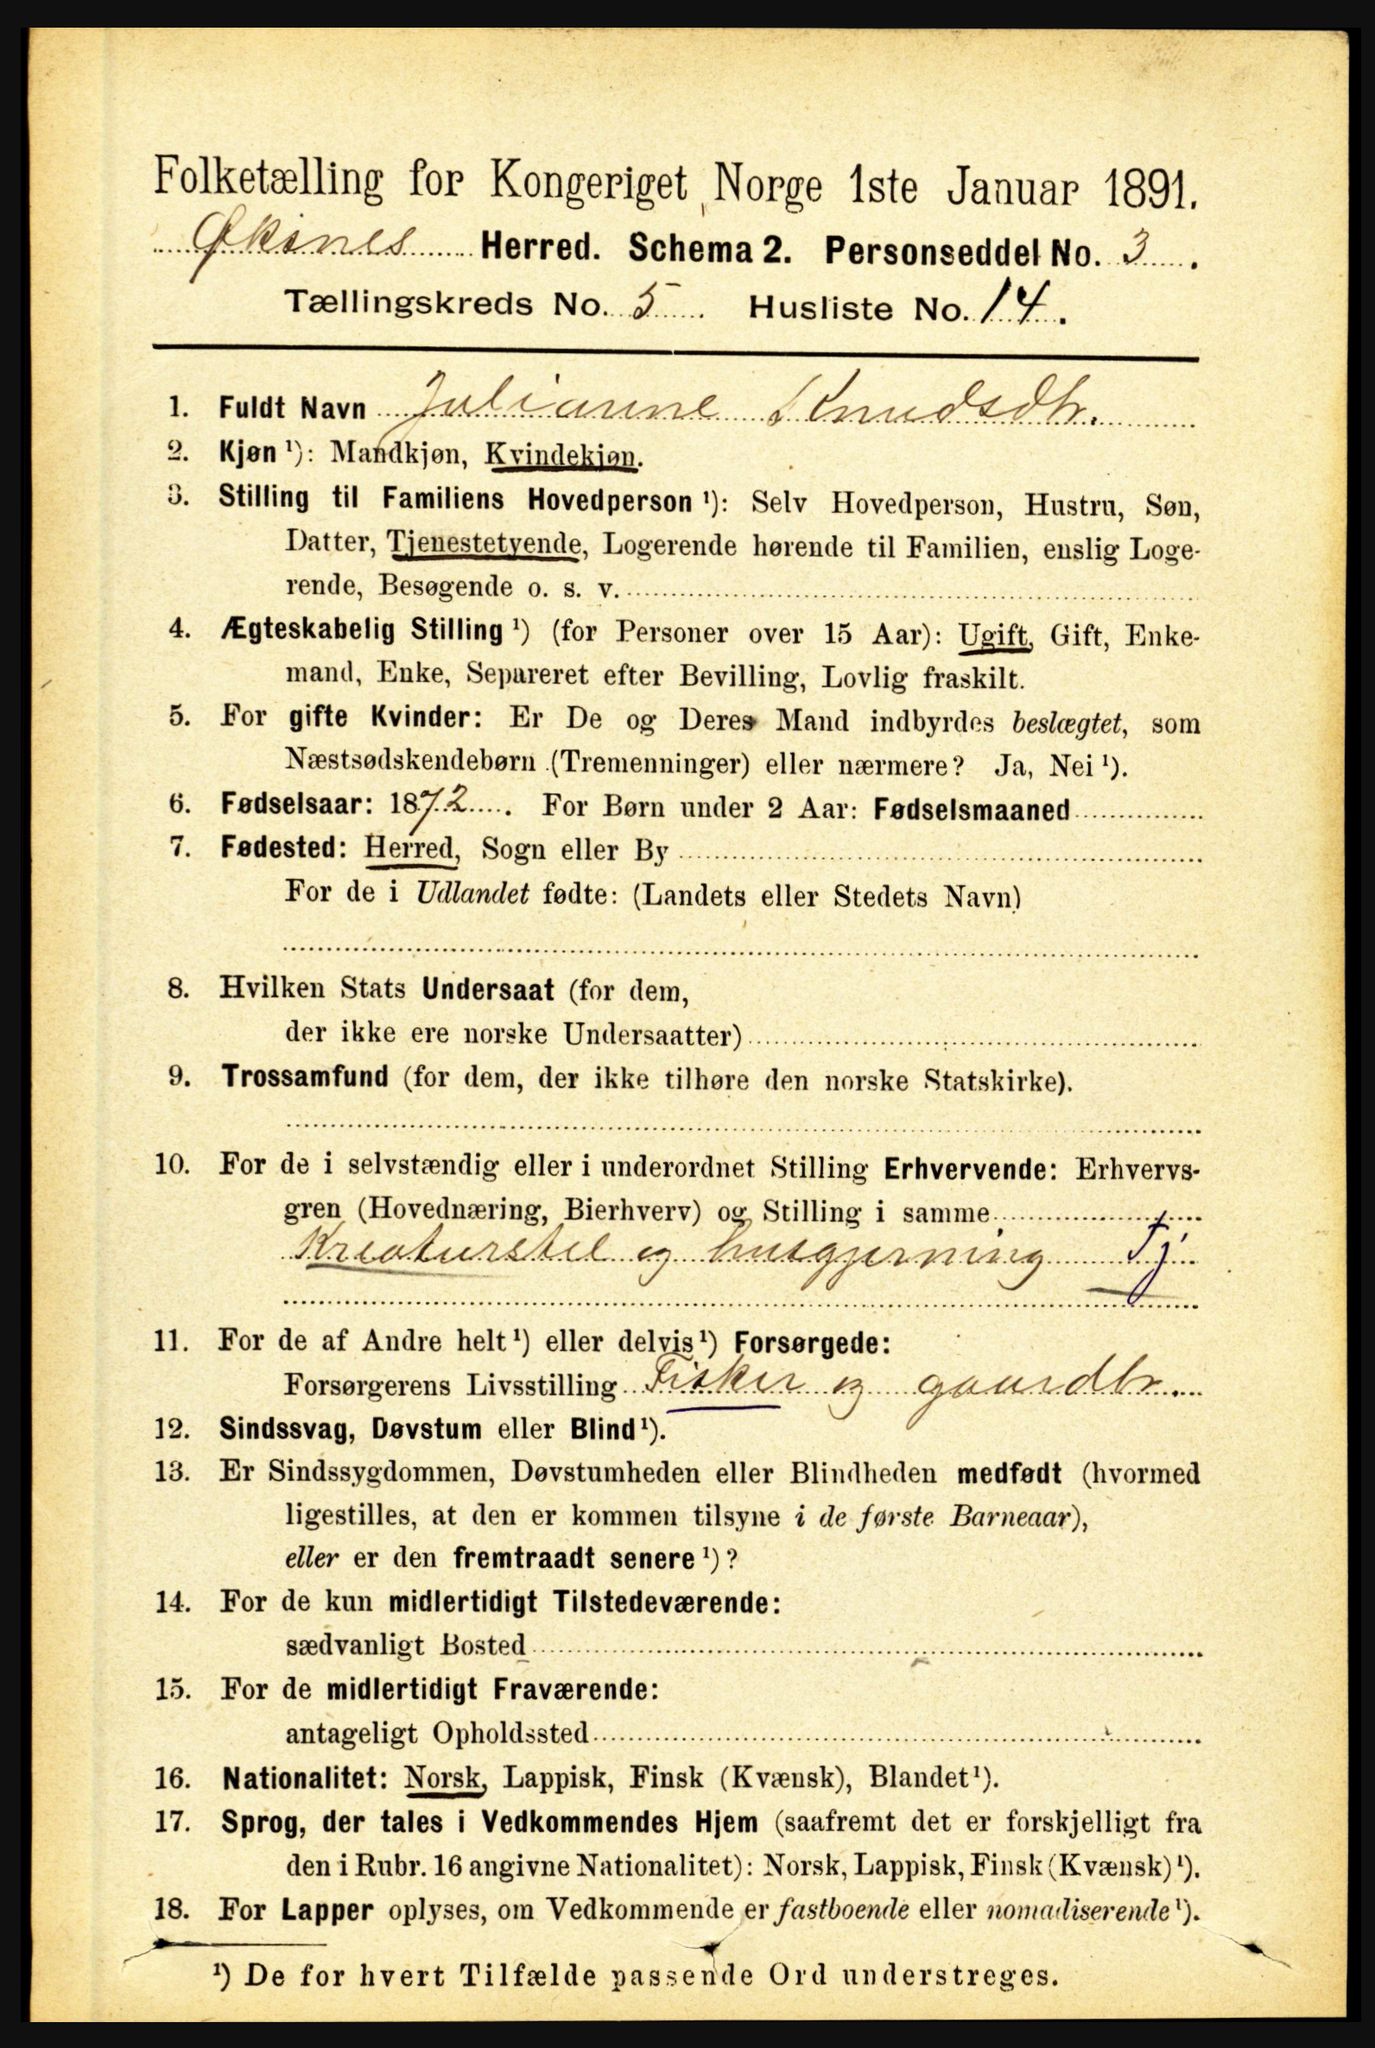 Folketælling for Kongeriget Norge 1ste Januar 1891.
Øksnes Herred. Schema 2. Personseddel No. 3.
Tællingskreds No. 5. Husliste No. 14.
1. Fuldt Navn Julianne Knudsdtr.
2. Kjøn ¹): Mandkjøn, Kvindekjøn.
3. Stilling til Familiens Hovedperson ¹): Selv Hovedperson, Hustru, Søn,
Datter, Tjenestetyende, Logerende hørende til Familien, enslig Loge-
rende, Besøgende o. s. v.
4. Ægteskabelig Stilling ¹) (for Personer over 15 Aar): Ugift, Gift, Enke-
mand, Enke, Separeret efter Bevilling, Lovlig fraskilt.
5. For gifte Kvinder: Er De og Deres Mand indbyrdes beslægtet, som
Næstsødskendebørn (Tremenninger) eller nærmere? Ja, Nei ¹).
6. Fødselsaar: 1872. For Børn under 2 Aar: Fødselsmaaned
7. Fødested: Herred, Sogn eller By
For de i Udlandet fødte: (Landets eller Stedets Navn)
8. Hvilken Stats Undersaat (for dem,
der ikke ere norske Undersaatter)
9. Trossamfund (for dem, der ikke tilhøre den norske Statskirke).
10. For de i selvstændig eller i underordnet Stilling Erhvervende: Erhvervs-
gren (Hovednæring, Bierhverv) og Stilling i samme
Kreaturstel og husgjerning Tj
11. For de af Andre helt ¹) eller delvis ¹) Forsørgede:
Forsørgerens Livsstilling Fisker og gaardbr.
12. Sindssvag, Døvstum eller Blind ¹).
13. Er Sindssygdommen, Døvstumheden eller Blindheden medfødt (hvormed
ligestilles, at den er kommen tilsyne i de første Barneaar),
eller er den fremtraadt senere ¹)?
14. For de kun midlertidigt Tilstedeværende:
sædvanligt Bosted
15. For de midlertidigt Fraværende:
antageligt Opholdssted
16. Nationalitet: Norsk, Lappisk, Finsk (Kvænsk), Blandet ¹).
17. Sprog, der tales i Vedkommendes Hjem (saafremt det er forskjelligt fra
den i Rubr. 16 angivne Nationalitet): Norsk, Lappisk, Finsk (Kvænsk) ¹).
18. For Lapper oplyses, om Vedkommende er fastboende eller nomadiserende ¹).
¹) De for hvert Tilfælde passende Ord understreges.